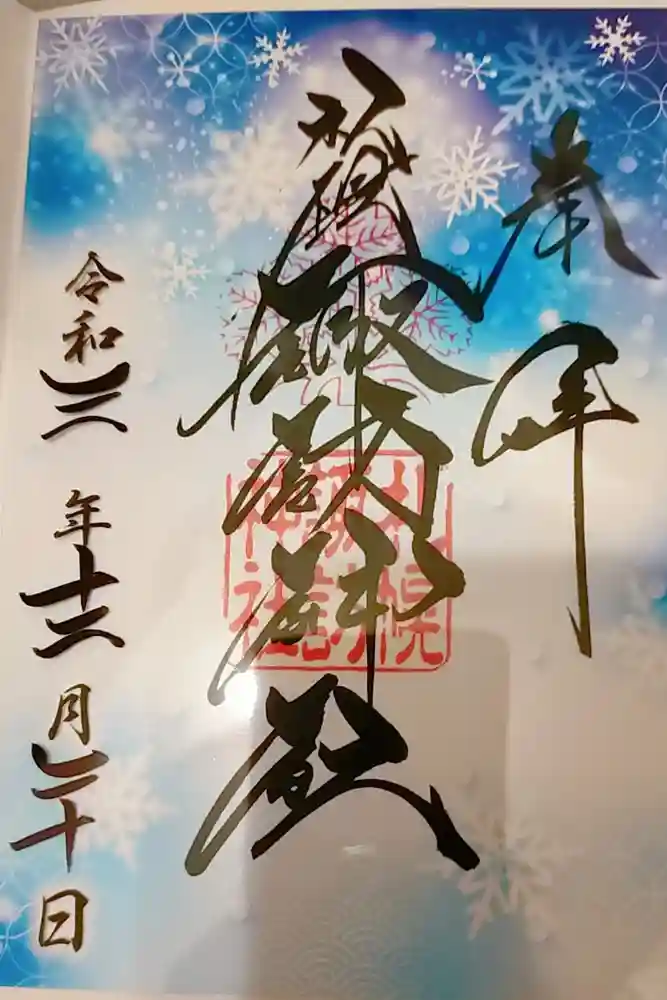 奉拝
札幌諏訪神社
令和三年十二月二十日
札幌
諏訪
神社